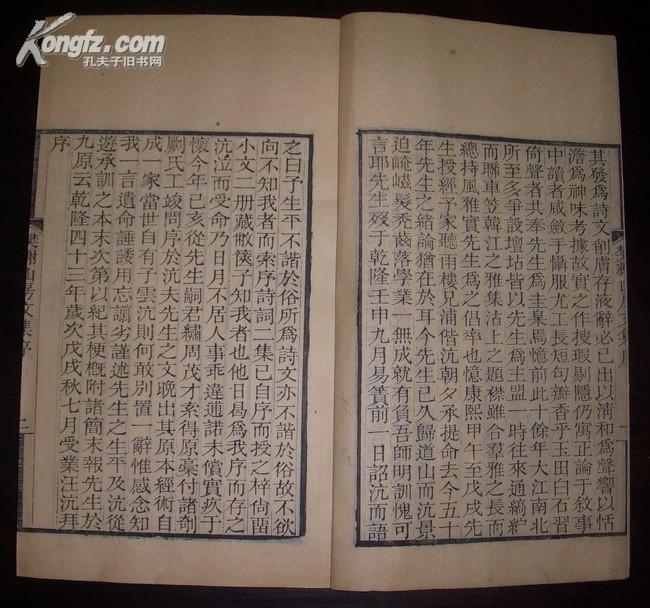 Kongfz.com
孔夫子旧书网
其發爲詩文削膚存液辭必已出以淸和爲聲響以恬
澹爲神味考據故實之作搜瑕剔隱仍寓正論于敘事
中讀者咸斂手懾服尤工長短句瓣香乎玉田白石習
倚聲者共奉先生爲圭臬焉憶前此十餘年大江南北
所至多爭設壇坫皆以先生爲主盟一時往來通縞紵
而聯車笠韓江之雅集沽上之題襟雖合羣雅之長而
總持風雅實先生爲之倡率也憶康熙甲午至戊戌先
生授經予家聽雨樓兄浦偕沆朝夕承提命去今五十
年先生之緒論猶在於耳今先生已久歸道山而沆景
迫崦嵫髮禿齒落學業一無成就有負吾師明訓愧可
言耶先生歿于乾隆壬申九月易簀前一日詔沆而語
之曰予生平不諧於俗所爲詩文亦不諧於俗故不欲
向不知我者而索序詩詞二集已自序而授之梓尙留
小文二册藏敝篋子知我者也他日曷爲我序而存之
沆泣而受命乃日月不居人事乖違逋諾未償實疚于
懷今年己亥從先生嗣君繡周茂才索得原稾付諸剞
劂氏工竣問序於沆夫先生之文晚出其原本經術自
成一家當世自有子雲沆則何敢別置一辭惟感念知
我一言遺命諈諉用忘譾劣謹述先生之生平及沆從
遊承訓之本末次第以紀其梗概附諸簡末報先生於
九原云乾隆四十三年歲次戊戌秋七月受業汪沆拜
序
樊榭山房文集序
二